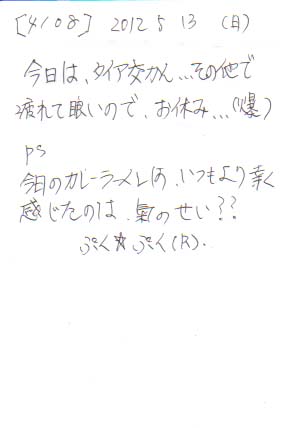 [4108] 2012 5 13 (日)
今日は、タイア交かん…その他で
疲れて眠いので、お休み…(爆)
ps
今日のカレーラーメンは、いつもより辛く
感じたのは、氣のせい??
ぷく☆ぷく(R).